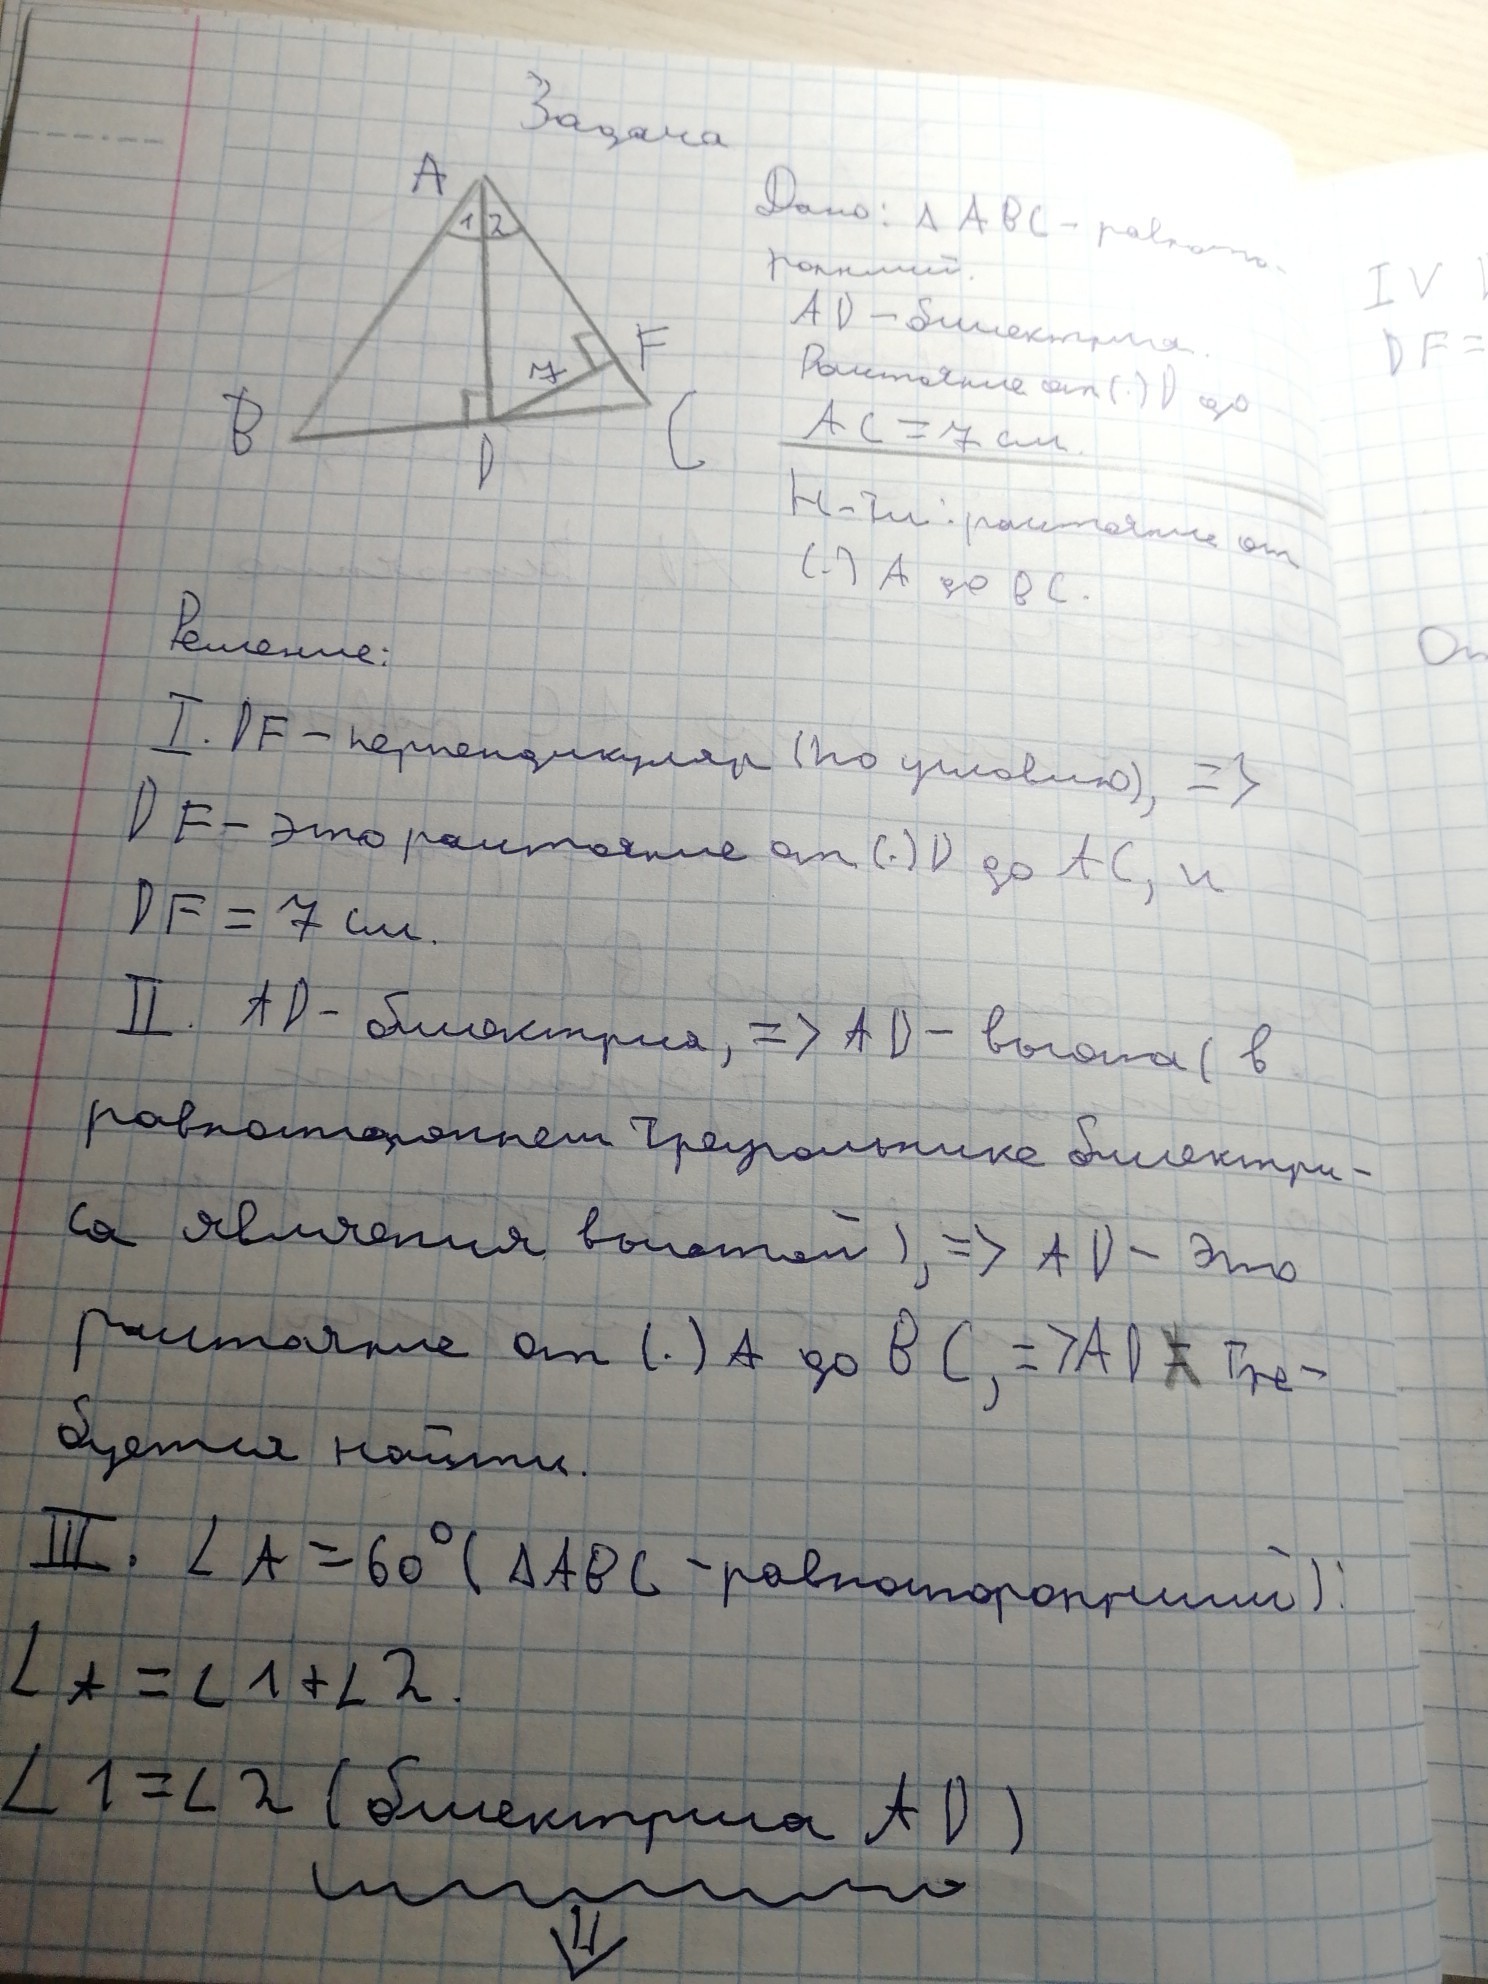 Задача
A
1 2
F
7
B
D
C
Дано: Δ ABC - равносто-
ронний.
AD - биссектриса.
Расстояние от (.) D до
AC = 7 см.
Н-ти: расстояние от
(.) A до BC.
Решение:
I. DF - перпендикуляр (по условию), =>
DF - это расстояние от (.) D до AC, и
DF = 7 см.
II. AD - биссектриса, => AD - высота (в
равностороннем треугольнике биссектри-
са является высотой), => AD - это
расстояние от (.) A до BC, => AD тре-
буется найти.
III. ∠A = 60° (ΔABC - равносторонний):
∠A = ∠1 + ∠2.
∠1 = ∠2 (биссектриса AD)
IV
DF =